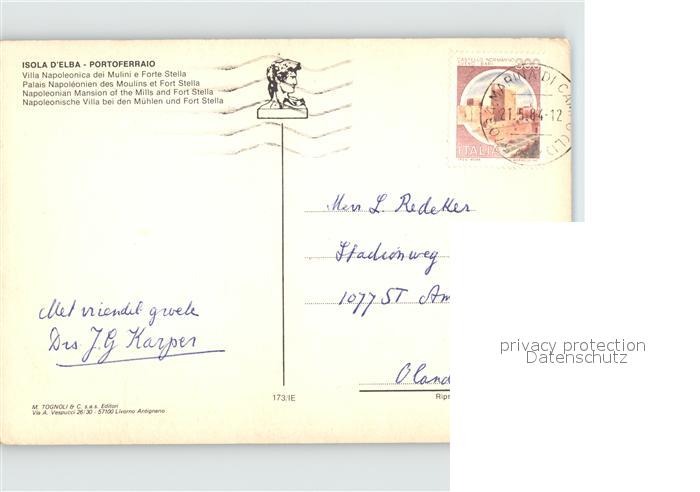 ISOLA D'ELBA - PORTOFERRAIO
Villa Napoleonica dei Mulini e Forte Stella
Palais Napoléonien des Moulins et Fort Stella
Napoleonian Mansion of the Mills and Fort Stella
Napoleonische Villa bei den Mühlen und Fort Stella
CASTELLO NORMANNO
SVEVO - BARI
ITALIA
MARINA DI CAMPO (LI)
21.5.84-12
Mevr L. Redeker
Stadionweg
1077 ST Am
Oland
Met vriendel groete
Drs J.G Karper
privacy protection
Datenschutz
M. TOGNOLI & C. s.a.s. Editori
Via A. Vespucci 26/30 - 57100 Livorno Antignano
173/IE
Ripr